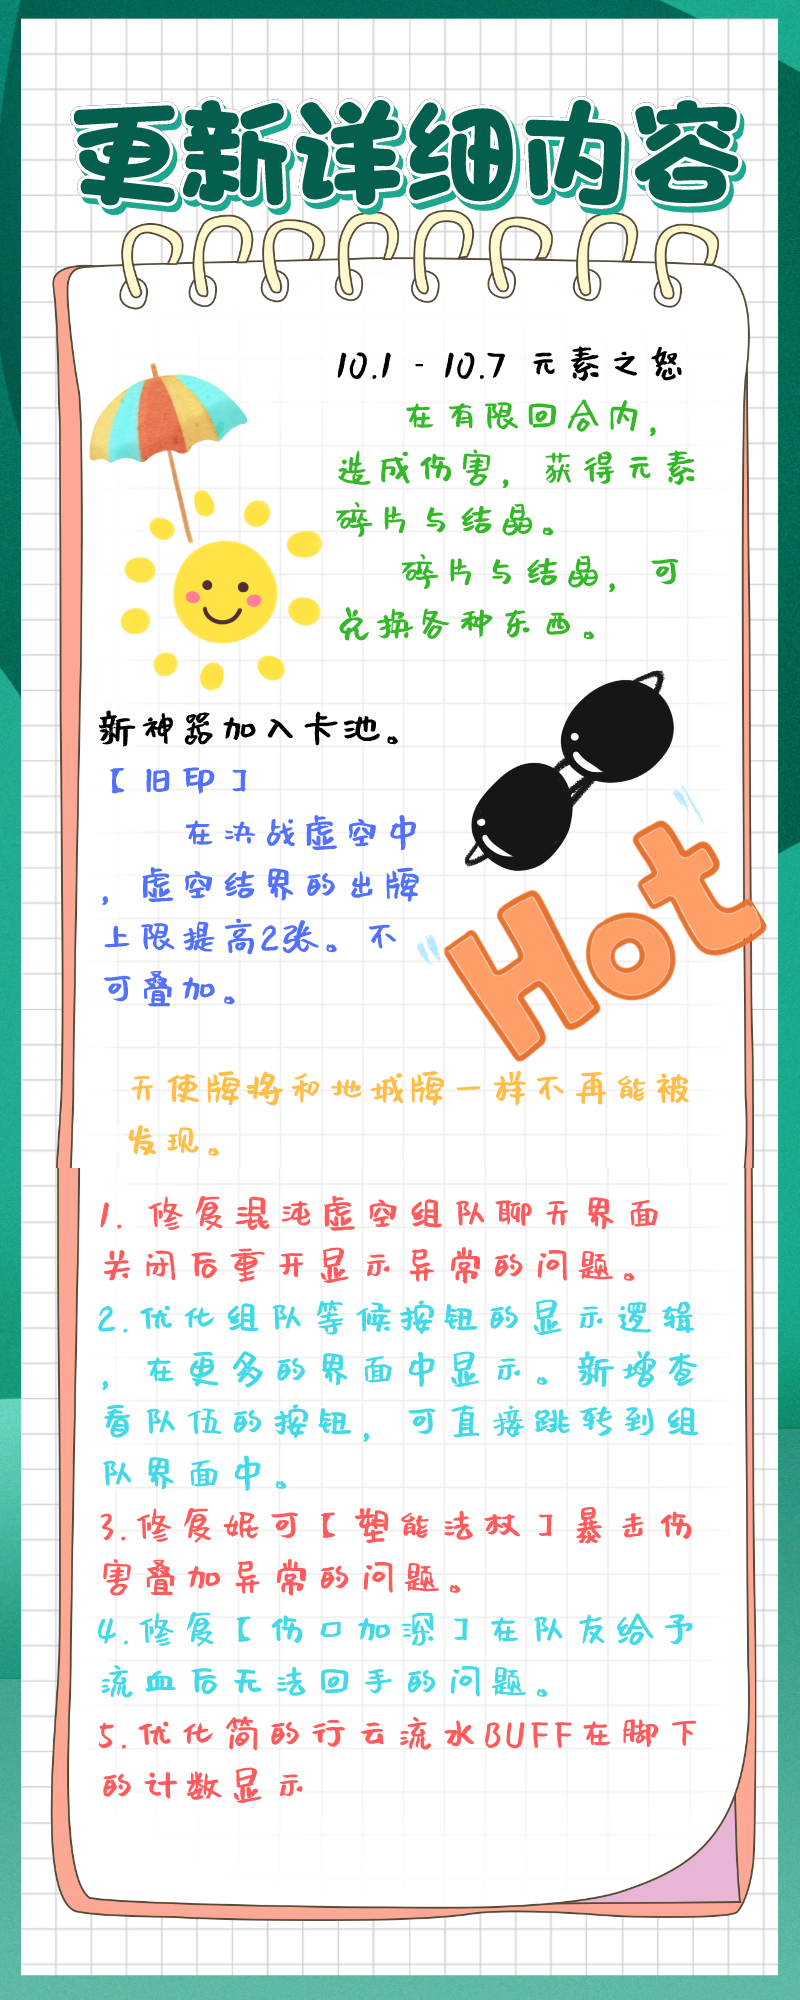 更新详细内容
10.1 - 10.7 元素之怒
在有限回合内，
造成伤害，获得元素
碎片与结晶。
碎片与结晶，可
兑换各种东西。
新神器加入卡池。
【旧印】
在决战虚空中
，虚空结界的出牌
上限提高2张。不
可叠加。
Hot
天使牌将和地城牌一样不再能被
发现。
1. 修复混沌虚空组队聊天界面
关闭后重开显示异常的问题。
2.优化组队等候按钮的显示逻辑
，在更多的界面中显示。新增查
看队伍的按钮，可直接跳转到组
队界面中。
3.修复妮可【塑能法杖】暴击伤
害叠加异常的问题。
4.修复【伤口加深】在队友给予
流血后无法回手的问题。
5.优化简的行云流水BUFF在脚下
的计数显示